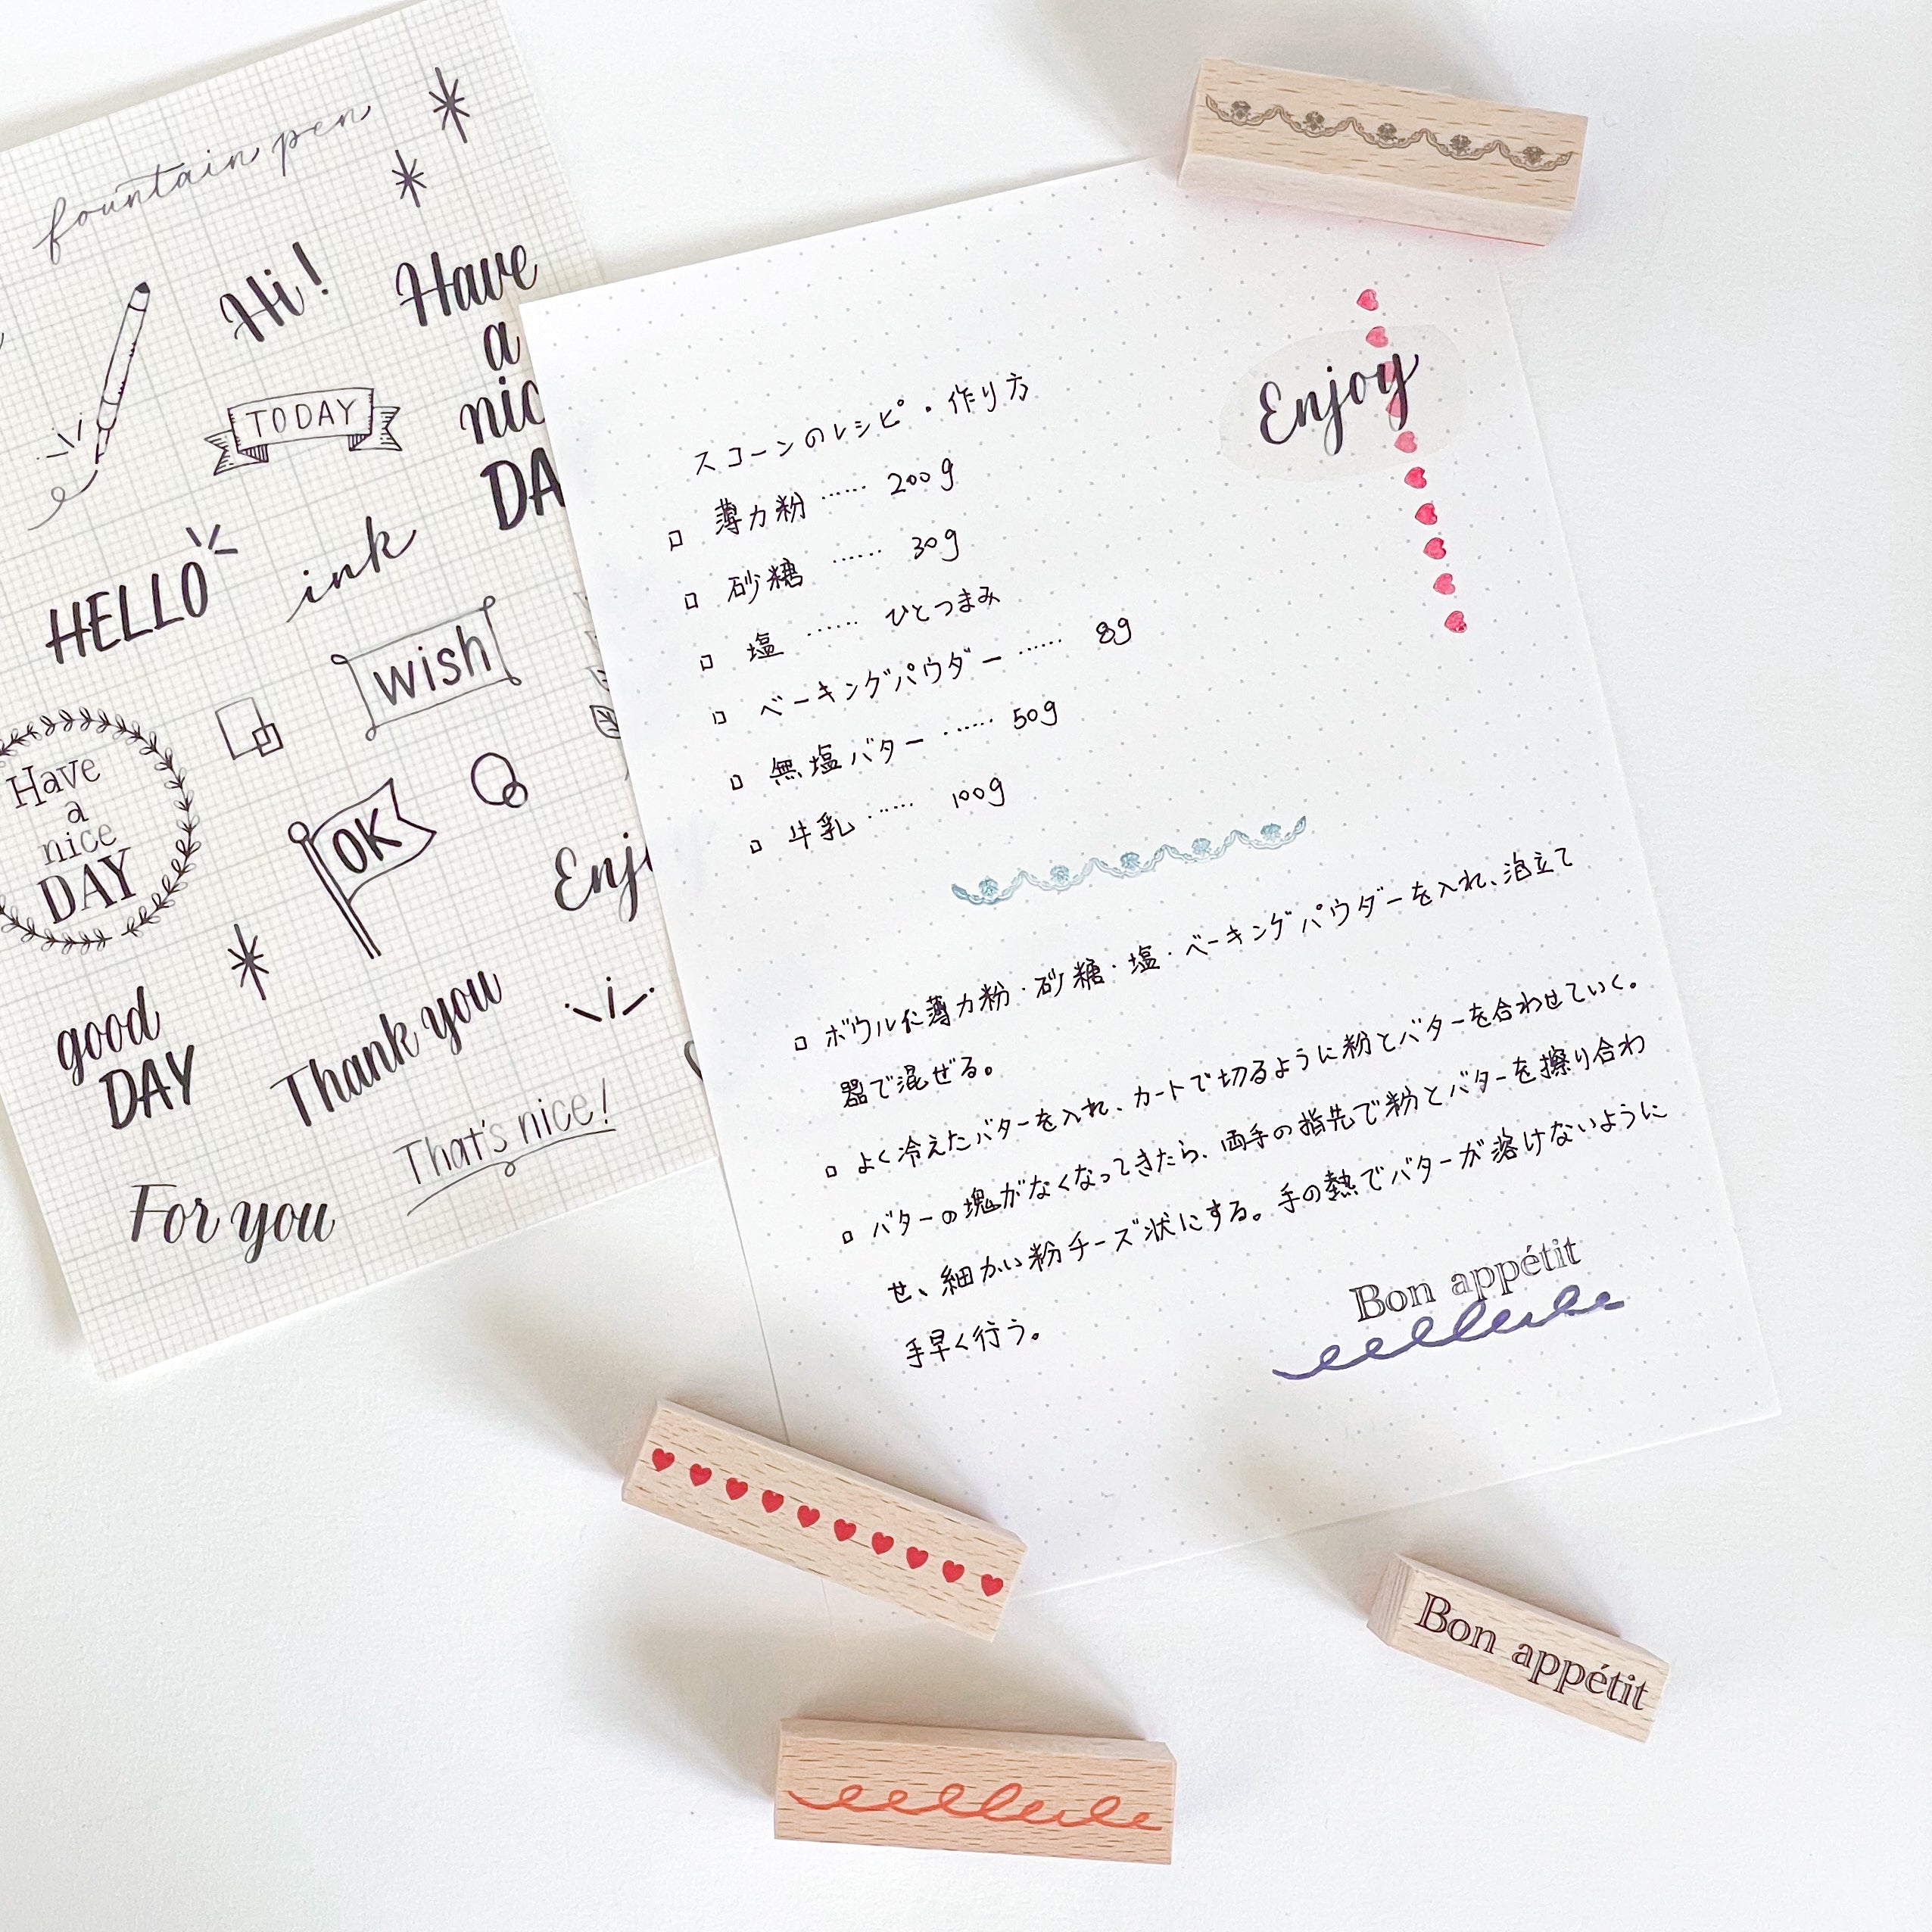 fountain pen
Hi!
Have
a
nic
DA
TODAY
HELLO
ink
wish
Have
a
nice
DAY
OK
Enj
good
DAY
Thank you
That's nice!
For you
Enjoy
スコーンのレシピ・作り方
□ 薄力粉 …… 200g
□ 砂糖 …… 30g
□ 塩 …… ひとつまみ
□ ベーキングパウダー …… 8g
□ 無塩バター …… 50g
□ 牛乳 …… 100g
□ ボウルに薄力粉・砂糖・塩・ベーキングパウダーを入れ、泡立て
器で混ぜる。
□ よく冷えたバターを入れ、カートで切るように粉とバターを合わせていく。
□ バターの塊がなくなってきたら、両手の指先で粉とバターを擦り合わ
せ、細かい粉チーズ状にする。手の熱でバターが溶けないように
手早く行う。
Bon appétit
Bon appétit